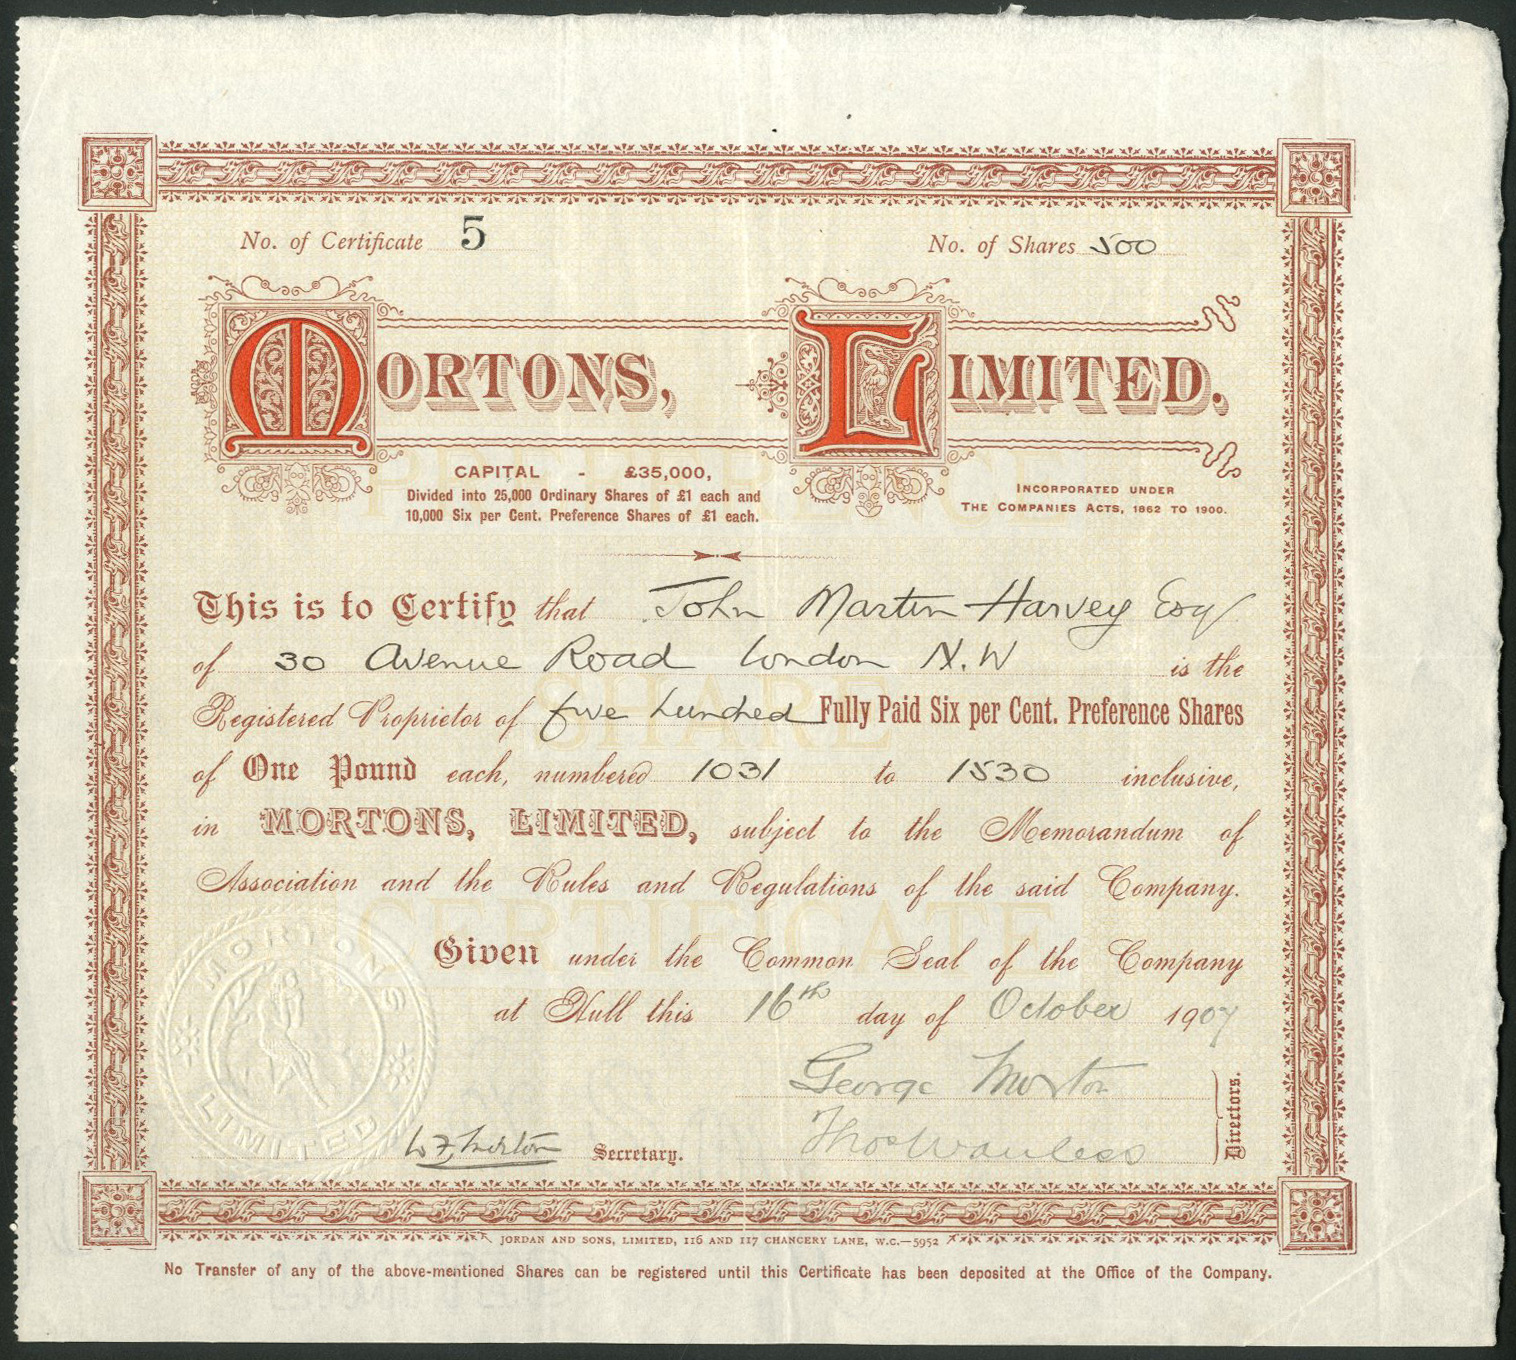 No. of Certificate 5
No. of Shares 500
MORTONS, LIMITED.
CAPITAL - £35,000,
Divided into 25,000 Ordinary Shares of £1 each and
10,000 Six per Cent. Preference Shares of £1 each.
INCORPORATED UNDER
THE COMPANIES ACTS, 1862 TO 1900.
PREFERENCE
SHARE
CERTIFICATE
This is to Certify that John Martin-Harvey Esq
of 30 Avenue Road London N.W is the
Registered Proprietor of five hundred Fully Paid Six per Cent. Preference Shares
of One Pound each, numbered 1031 to 1530 inclusive,
in MORTONS, LIMITED, subject to the Memorandum of
Association and the Rules and Regulations of the said Company.
Given under the Common Seal of the Company
at Hull this 16th day of October 1907
George Morton
Thos Wanless
Directors.
MORTONS
LIMITED
W F Morton Secretary.
JORDAN AND SONS, LIMITED, 116 AND 117 CHANCERY LANE, W.C.—5952
No Transfer of any of the above-mentioned Shares can be registered until this Certificate has been deposited at the Office of the Company.